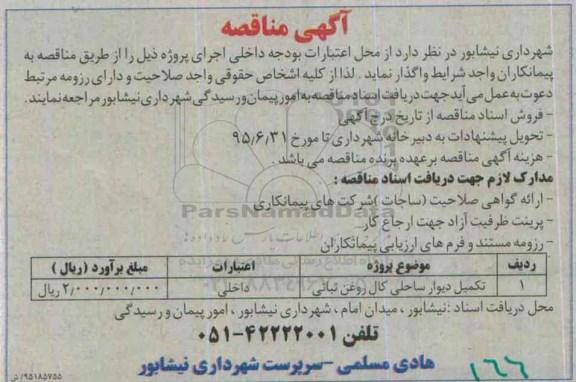 آگهی مناقصه
شهرداری نیشابور در نظر دارد از محل اعتبارات بودجه داخلی اجرای پروژه ذیل را از طریق مناقصه به
پیمانکاران واجد شرایط واگذار نماید . لذا از کلیه اشخاص حقوقی واجد صلاحیت و دارای رزومه مرتبط
دعوت به عمل می آید جهت دریافت اسناد مناقصه به امور پیمان و رسیدگی شهرداری نیشابور مراجعه نمایند.
- فروش اسناد مناقصه از تاریخ درج آگهی
- تحویل پیشنهادات به دبیرخانه شهرداری تا مورخ ۹۵/۶/۳۱
- هزینه آگهی مناقصه بر عهده برنده مناقصه می باشد .
مدارک لازم جهت دریافت اسناد مناقصه :
- ارائه گواهی صلاحیت (ساجات) شرکت های پیمانکاری
- پرینت ظرفیت آزاد جهت ارجاع کار
ParsNamadData
- رزومه مستند و فرم های ارزیابی پیمانکاران
ردیف موضوع پروژه اعتبارات مبلغ برآورد (ریال )
۱ تکمیل دیوار ساحلی کال روغن نباتی داخلی ۲/۰۰۰/۰۰۰/۰۰۰ ریال
محل دریافت اسناد :نیشابور ، میدان امام ، شهرداری نیشابور ، امور پیمان و رسیدگی
تلفن ۴۲۲۲۲۰۰۱-۰۵۱
هادی مسلمی -سرپرست شهرداری نیشابور
۱۶۶
۹۵۱۸۵۷۵۵/ش